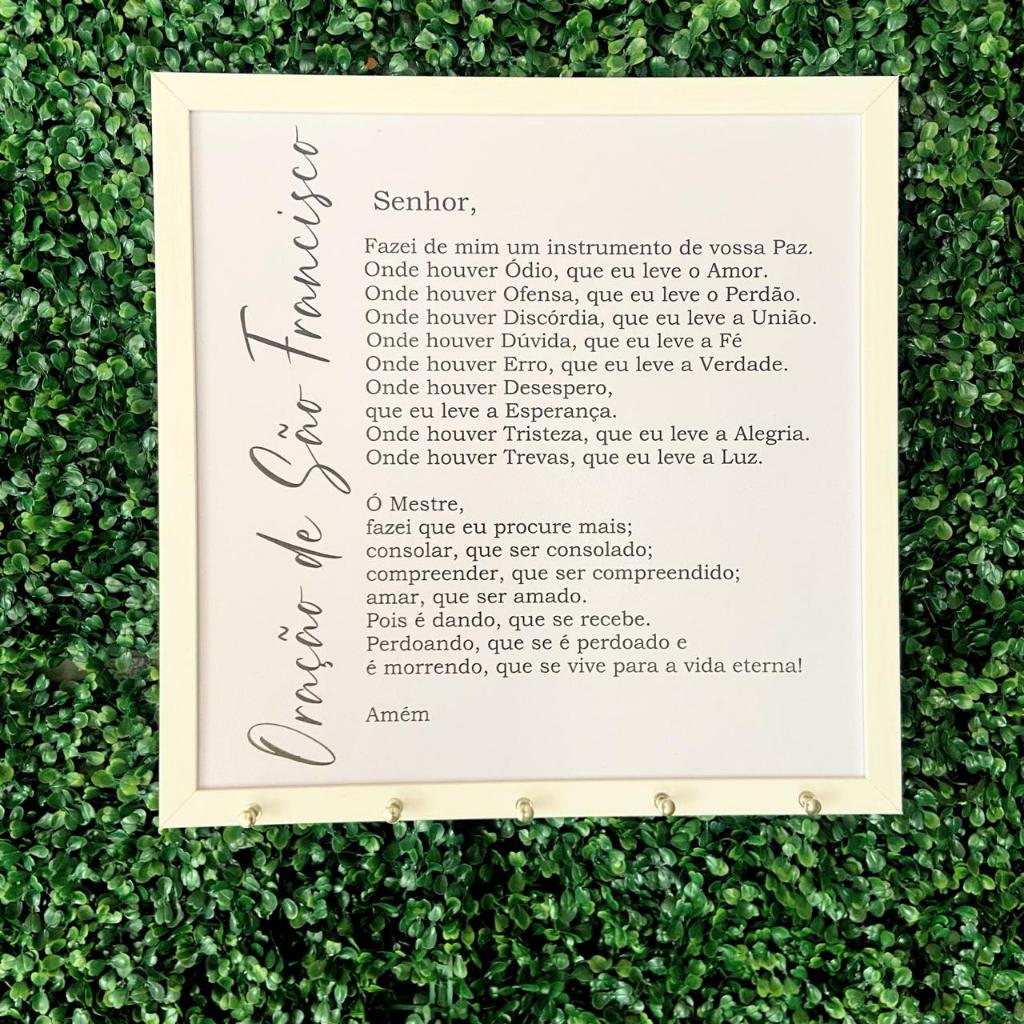 Oração de São Francisco
Senhor,
Fazei de mim um instrumento de vossa Paz.
Onde houver Ódio, que eu leve o Amor.
Onde houver Ofensa, que eu leve o Perdão.
Onde houver Discórdia, que eu leve a União.
Onde houver Dúvida, que eu leve a Fé
Onde houver Erro, que eu leve a Verdade.
Onde houver Desespero,
que eu leve a Esperança.
Onde houver Tristeza, que eu leve a Alegria.
Onde houver Trevas, que eu leve a Luz.
Ó Mestre,
fazei que eu procure mais;
consolar, que ser consolado;
compreender, que ser compreendido;
amar, que ser amado.
Pois é dando, que se recebe.
Perdoando, que se é perdoado e
é morrendo, que se vive para a vida eterna!
Amém